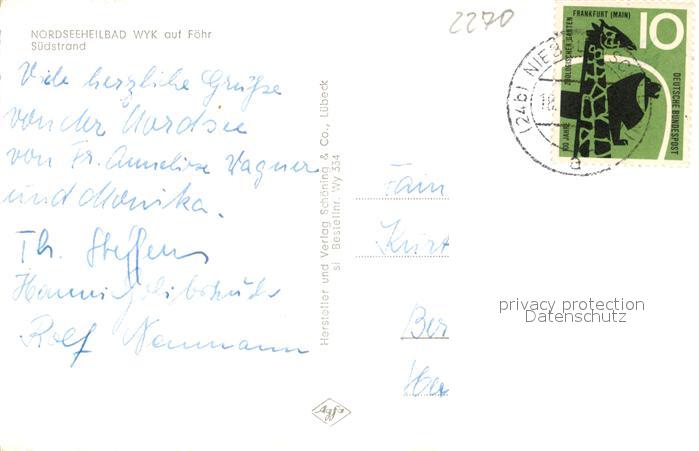 2270
NORDSEEHEILBAD WYK auf Föhr
Südstrand
Viele herzliche Grüße
von der Nordsee
von Fr. Anneliese Wagner
und Monika.
Th. Steffens
Rolf Neumann
Hersteller und Verlag Schöning & Co., Lübeck
si Bestellnr. Wy 334
Agfa
Fam
Kurt
Ber
privacy protection
Datenschutz
(24b) NIEB
18.
a
10
FRANKFURT (MAIN)
ZOOLOGISCHER GARTEN
100 JAHRE
DEUTSCHE BUNDESPOST